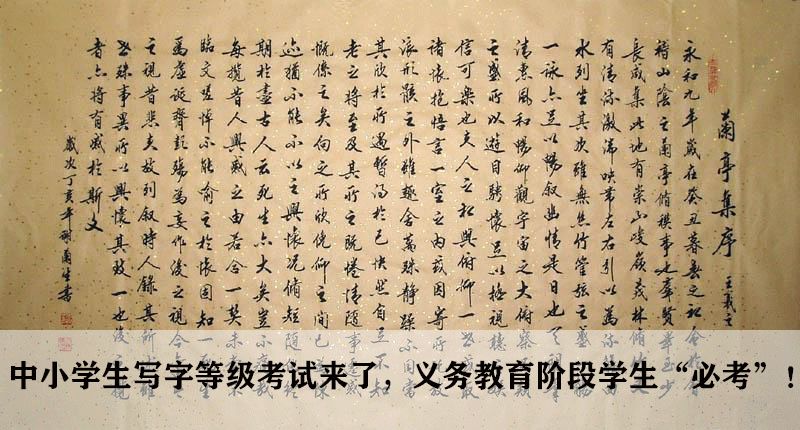 蘭亭集序 王羲之
永和九年歲在癸丑暮春之初會於會
稽山陰之蘭亭脩稧事也羣賢畢至少
長咸集此地有崇山峻嶺茂林脩
有清流激湍映帶左右引以為流
水列坐其次雖無絲竹管弦之盛
一詠亦足以暢叙幽情是日也天
清惠風和暢仰觀宇宙之大俯察
之盛所以遊目騁懷足以極視聽
信可樂也夫人之相與俯仰一世或取
諸懷抱悟言一室之內或因寄所
浪形骸之外雖趣舍萬殊靜躁不同當
其欣於所遇暫得於己快然自足不知
老之將至及其所之既惓情隨事遷
慨係之矣向之所欣俛仰之間已為
迹猶不能不以之興懷況脩短隨
期於盡古人云死生亦大矣豈不
每攬昔人興感之由若合一契未
臨文嗟悼不能喻之於懷固知一
為虛誕齊彭殤為妄作後之視今
之視昔悲夫故列叙時人錄其所
世殊事異所以興懷其致一也後之
者亦將有感於斯文
歲次丁亥年
中小学生写字等级考试来了，义务教育阶段学生“必考”！